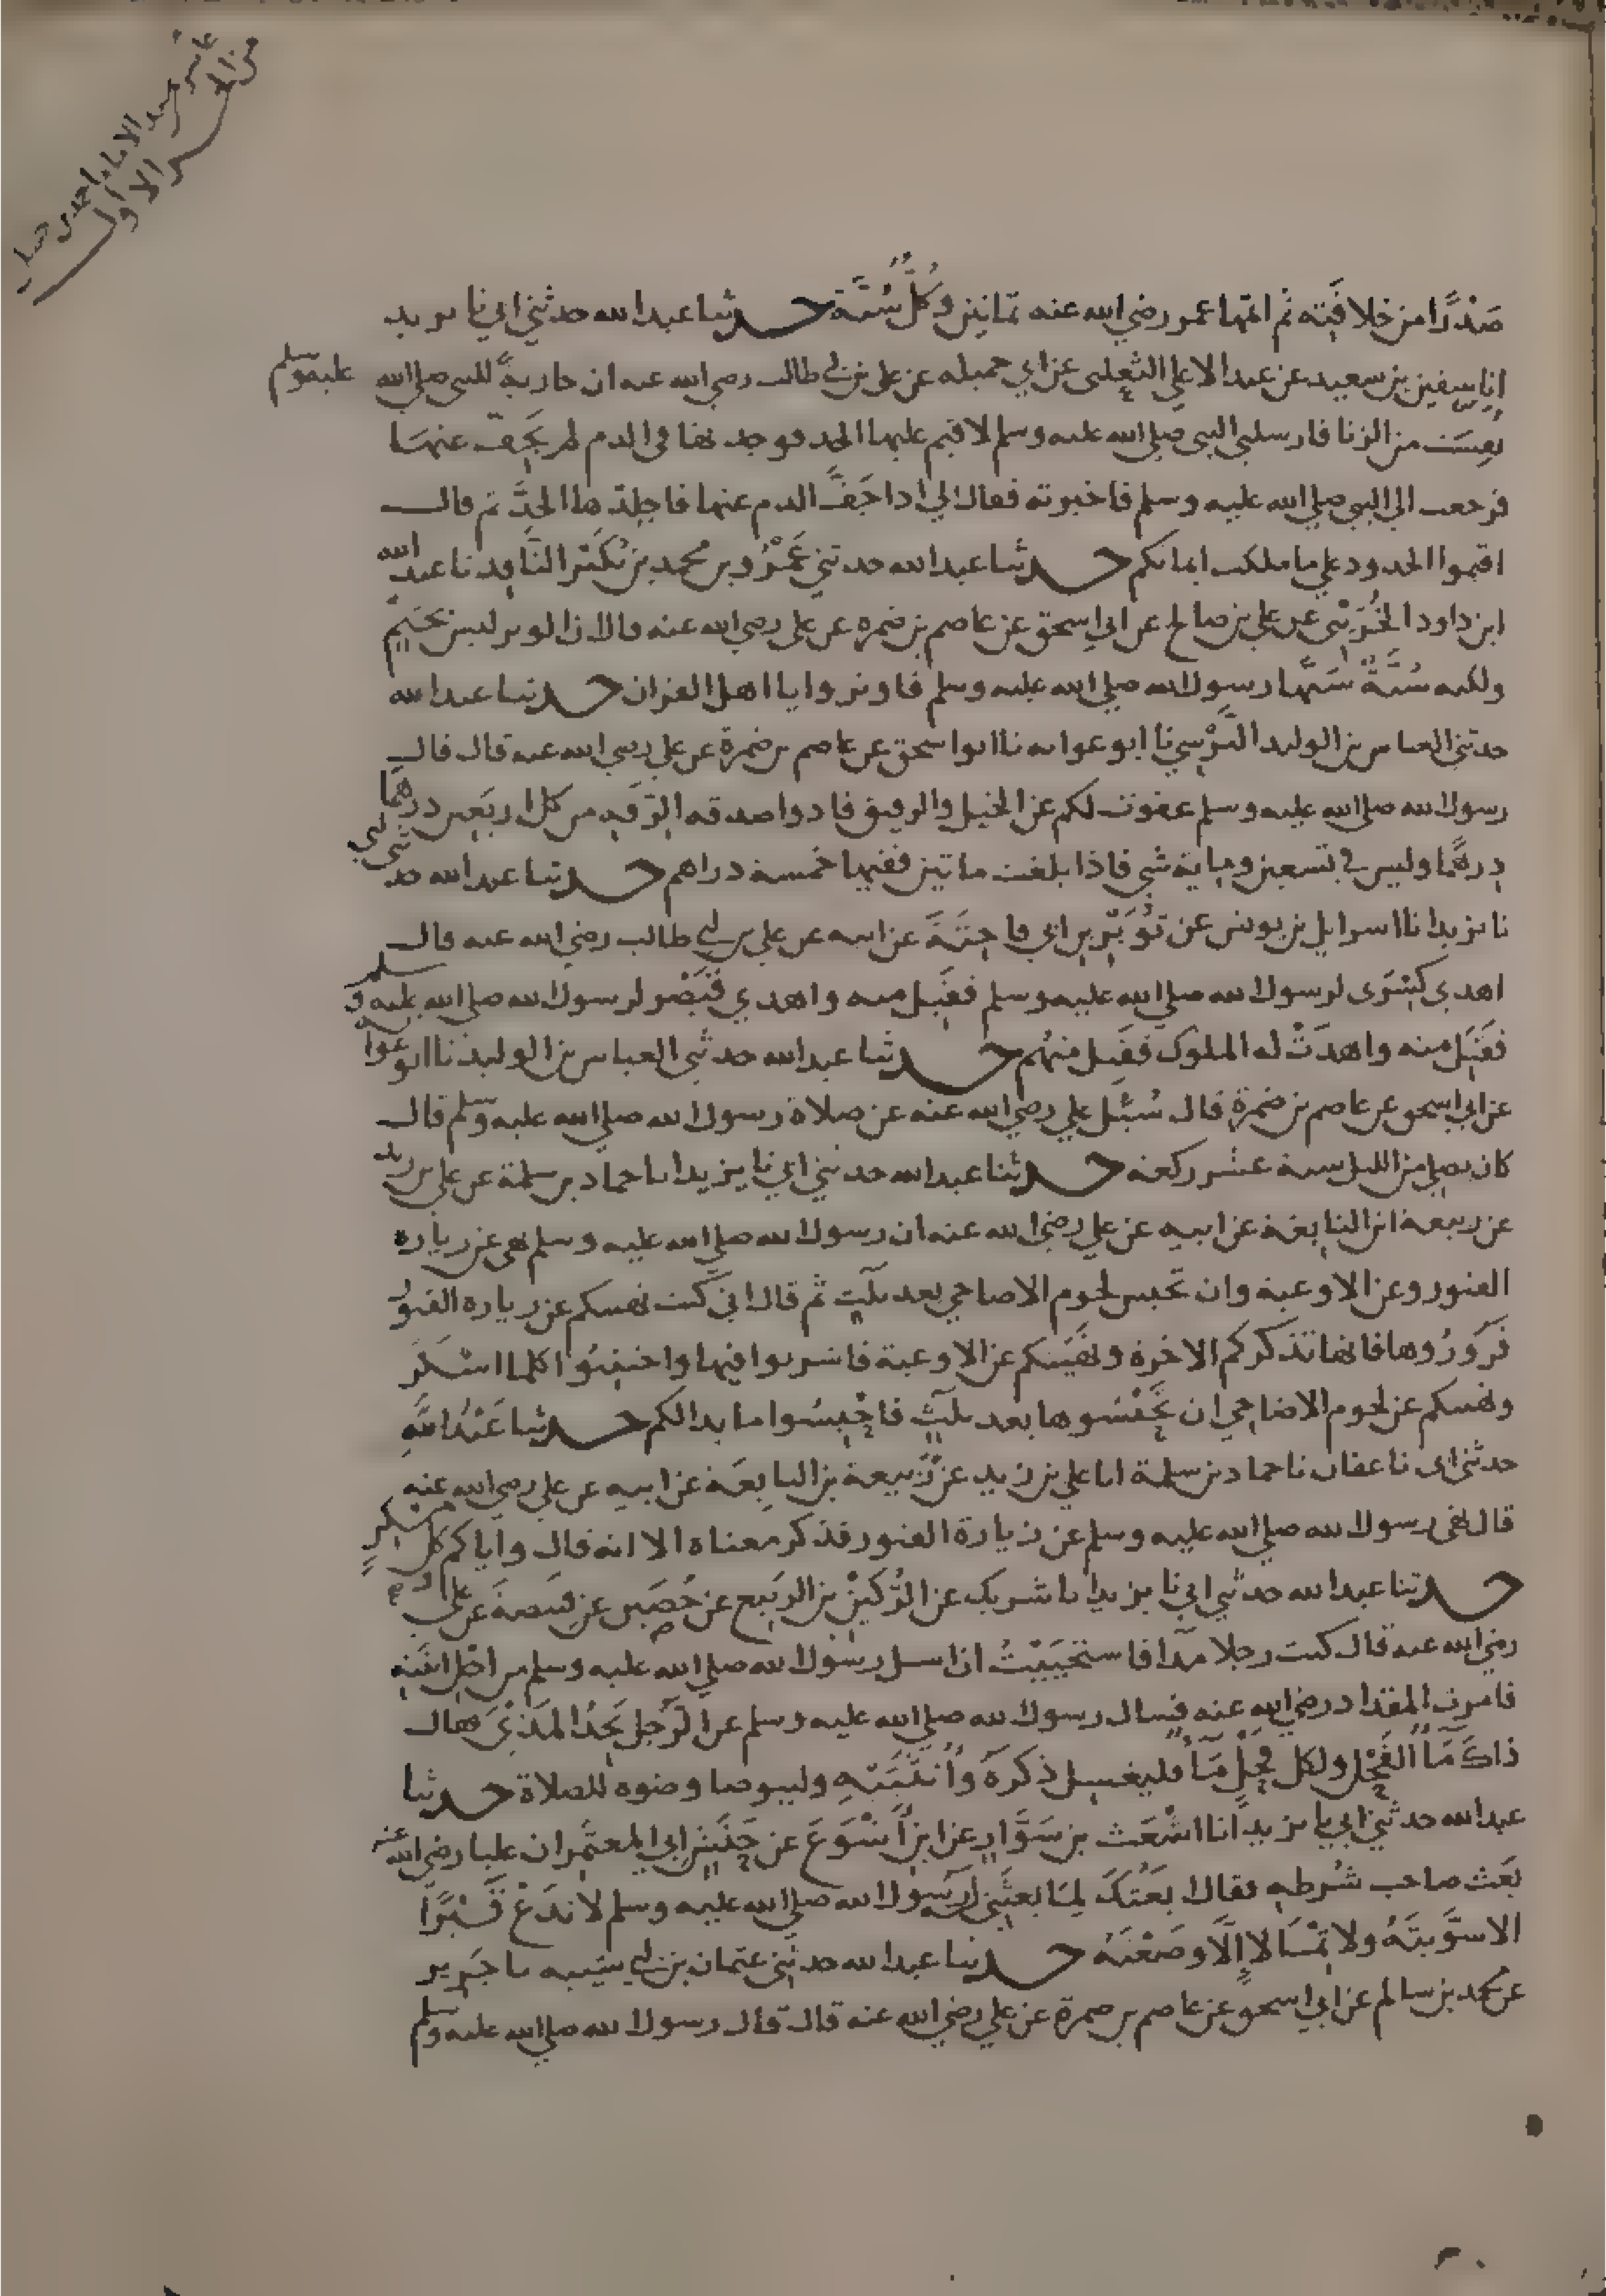 صَدْرًا من خلافَتِه ثم اتمها عمر رضي الله عنه ثمانين وكُلٌّ سُنَّة حدثنا عبدالله حدثني ابي نا يزيد
انا سفين بن سعيد عن عبد الاعلي الثعلبي عن ابي جميله عن علي بن ابي طالب رضي الله عنه ان جارية للنبي صلي الله عليه وسلم
نُفِسَت من الزنا فارسلني النبي صلي الله عليه وسلم لاقيم عليها الحد فوجدتها في الدم لم يَجِفّ عنها
فرجعت الي النبي صلي الله عليه وسلم فاخبرته فقال لي اذا جَفَّ الدم عنها فاجلِدها الحدَّ ثم قال
اقيموا الحدود علي ما ملكت ايمانكم حدثنا عبدالله حدثني عَمْرُو بن محمد بن بُكَيْر الناقد نا عبد الله
ابن داود الخُرَيْبي عن علي بن صالح عن ابي اسحق عن عاصم بن ضمرة عن علي رضي الله عنه قال ان الوتر ليس بحَتْمٍ
ولكنه سُنَّةٌ سَنَّها رسول الله صلي الله عليه وسلم فاوتروا يا اهل القران حدثنا عبدالله
حدثني العباس بن الوليد النَّرْسي نا ابو عوانه نا ابو اسحق عن عاصم بن ضمرة عن علي رضي الله عنه قال قال
رسول الله صلي الله عليه وسلم عفوت لكم عن الخيل والرقيق فادوا صدقه الرِّقَه من كل اربعين درهمًا
درهمًا وليس في تسعين وماية شي فاذا بلغت ماتين ففيها خمسة دراهم حدثنا عبدالله حدثني ابي
نا يزيد انا اسرايل بن يونس عن ثُوَيْر بن ابي فاخِتَةَ عن ابيه عن علي بن ابي طالب رضي الله عنه قال
اهدي كِسْرَى لرسول الله صلي الله عليه وسلم فقَبِل منه واهدي قَيْصَر لرسول الله صلي الله عليه وسلم
فقَبِل منه واهدَتْ له الملوك فقَبِل منهم حدثنا عبدالله حدثني العباس بن الوليد نا ابو عوانه
عن ابي اسحق عن عاصم بن ضمرة قال سُئِل علي رضي الله عنه عن صلاة رسول الله صلي الله عليه وسلم قال
كان يصلي من الليل ستة عشر ركعة حدثنا عبدالله حدثني ابي نا يزيد انا حماد بن سلمة عن علي بن زيد
عن ربيعة ابن النابغة عن ابيه عن علي رضي الله عنه ان رسول الله صلي الله عليه وسلم نهى عن زيارة
القبور وعن الاوعية وان تحبس لحوم الاضاحي بعد ثلث ثم قال اني كنت نهيتكم عن زيارة القبور
فزوروها فانها تذكركم الاخرة ونهيتكم عن الاوعية فاشربوا فيها واجتنبُوا كلما اسْكَرَ
ونهيتكم عن لحوم الاضاحي ان تَحْبِسُوها بعد ثلثٍ فاحْبِسُوا ما بدا لكم حدثنا عَبْدُ اللَّهِ
حدثني ابي نا عفان نا حماد بن سلمة انا علي بن زيد عن رَبيعة بن النابِغَة عن ابيه عن علي رضي الله عنه
قال نهى رسول الله صلي الله عليه وسلم عن زيارة القبور فذكر معناه الا انه قال واياكم كل مُسْكرٍ
حدثنا عبدالله حدثني ابي نا يزيد انا شريك عن الرُّكَيْن بن الربيع عن حُصَين عن قبيصة عن علي
رضي الله عنه قال كنت رجلا مذّا فاستَحْيَيْتُ ان اسل رسول الله صلي الله عليه وسلم من اجْل ابنَتِه
فامرت المقداد رضي الله عنه فسال رسول الله صلي الله عليه وسلم عن الرَّجل يَجدُ المَذْىَ فقال
ذاكَ مَآُ الفَحْل ولكل فحْلٍ مَآٌ فليغسل ذكرَهُ وأُنْثَيَيْهِ وليتوضا وضوه للصلاة حدثنا
عبدالله حدثني ابي نا يزيد انا اشْعَث بن سَوَّارٍ عن ابن أَشْوَعَ عن حَنَشٍ ابي المعتَمِر ان عليا رضي الله عنه
بَعَث صاحب شُرطه فقال ابعَثُكَ لما بعثَنِي له رسول الله صلي الله عليه وسلم لا تدَعْ قَبْرًا
الا سَوَّيتَهُ ولا تِمْثَالا إِلَّا وضَعْتَهُ حدثنا عبدالله حدثني عثمان بن ابي شيبه نا جرير
عن محمد بن سالم عن ابي اسحق عن عاصم بن ضمرة عن علي رضي الله عنه قال قال رسول الله صلي الله عليه وسلم